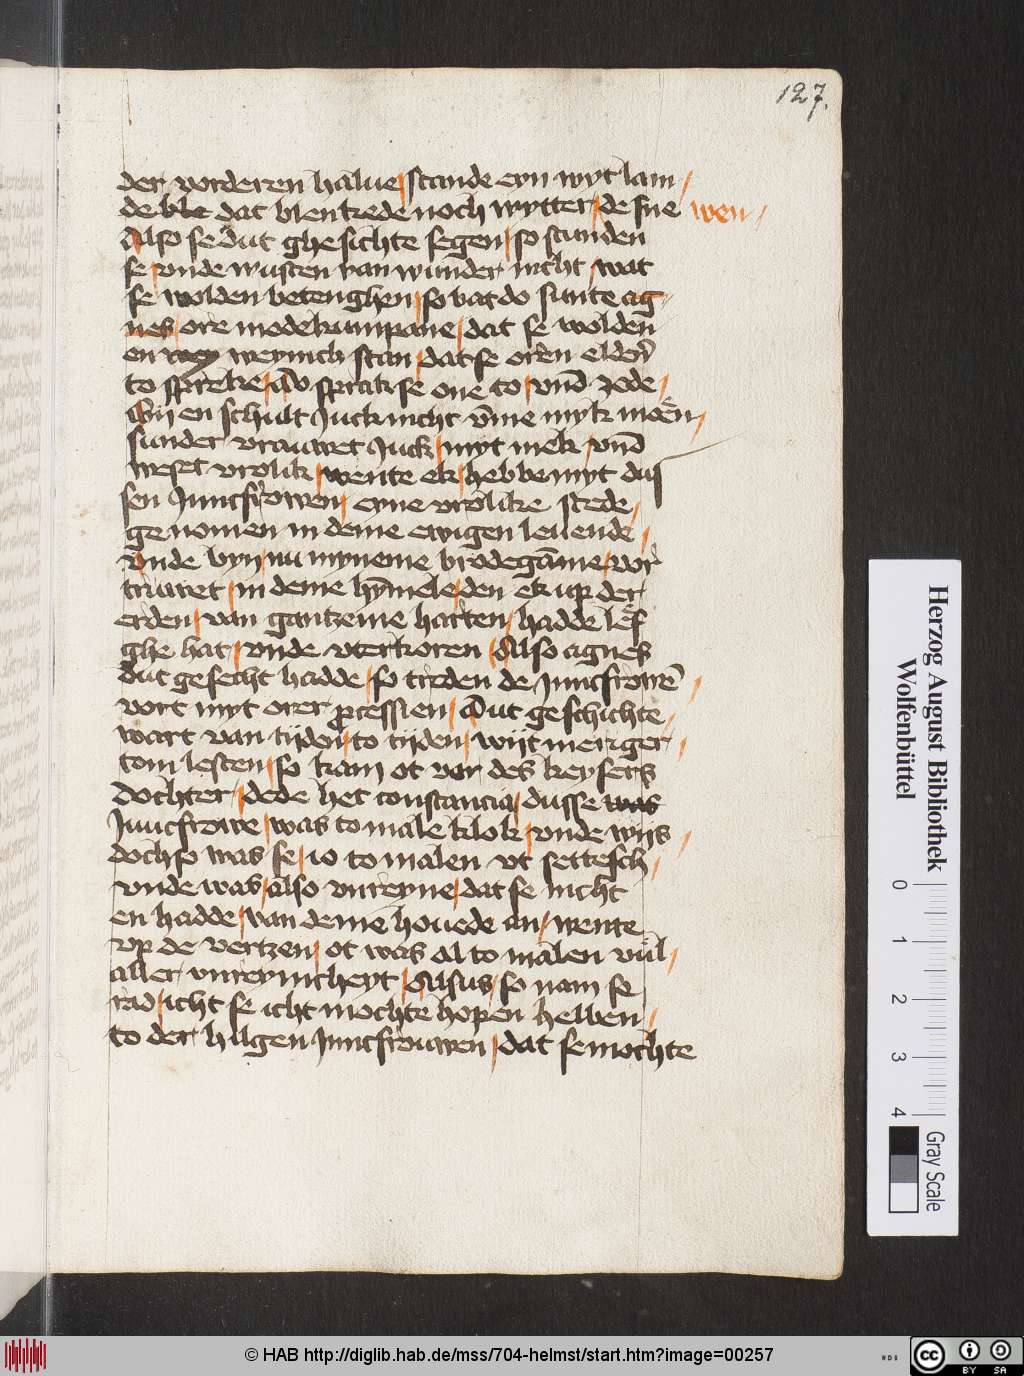 127.
der vorderen halue / stande eyn wyt lam /
de blc dat blenkede noch wytter / de sne wen /
Also se dut ghesichte segen / so stunden
se vnde wusten van wunder nicht / wat
se wolden betenghen / so bat do sunte ag-
nes / ore medekumpane / dat se wolden
en wey weynich stan / dat se oren eldern̄
to spreke / Do sprak se one to / vnd̄ zede /
Gy en schult Juck nicht vm̄e myk moen /
sunder vrauwet Juck / myt mek / vnd̄
weset vrolik / wente ek hebbe myt dus
sen Juncfrowen / eyne vrolike stede /
genomen in deme ewigen leuende /
vnde byn nu myneme brodegāme / vor
truwet / in deme hȳmele / den ek up der
erden / van gantzeme harten / hadde lef
ghe hat / vnde vterkoren / Also agnes
dut gesecht hadde / so treden de Juncfrowē /
vort myt orer processien / Dut geschichte /
wart van tijden / to tijden / wijt meriger /
tom lesten / so kam ot vor des keysers
dochter / dede het constancia / dusse was
Juncfrowe / was to male klok / vnde wijs /
doch so was se / io to malen vt settesch /
vnde was / also vnreyne / dat se nicht
en hadde / van deme houede an / wente
vp de vertzen / ot was al to malen vul /
aller vnreynicheyt / Alsus / so nam se
rad / icht se icht mochte hopen hebben /
to der hilgen Juncfrouwen / dat se mochte
Herzog August Bibliothek
Wolfenbüttel
0 1 2 3 4
Gray Scale
© HAB http://diglib.hab.de/mss/704-helmst/start.htm?image=00257
HAB
cc BY SA